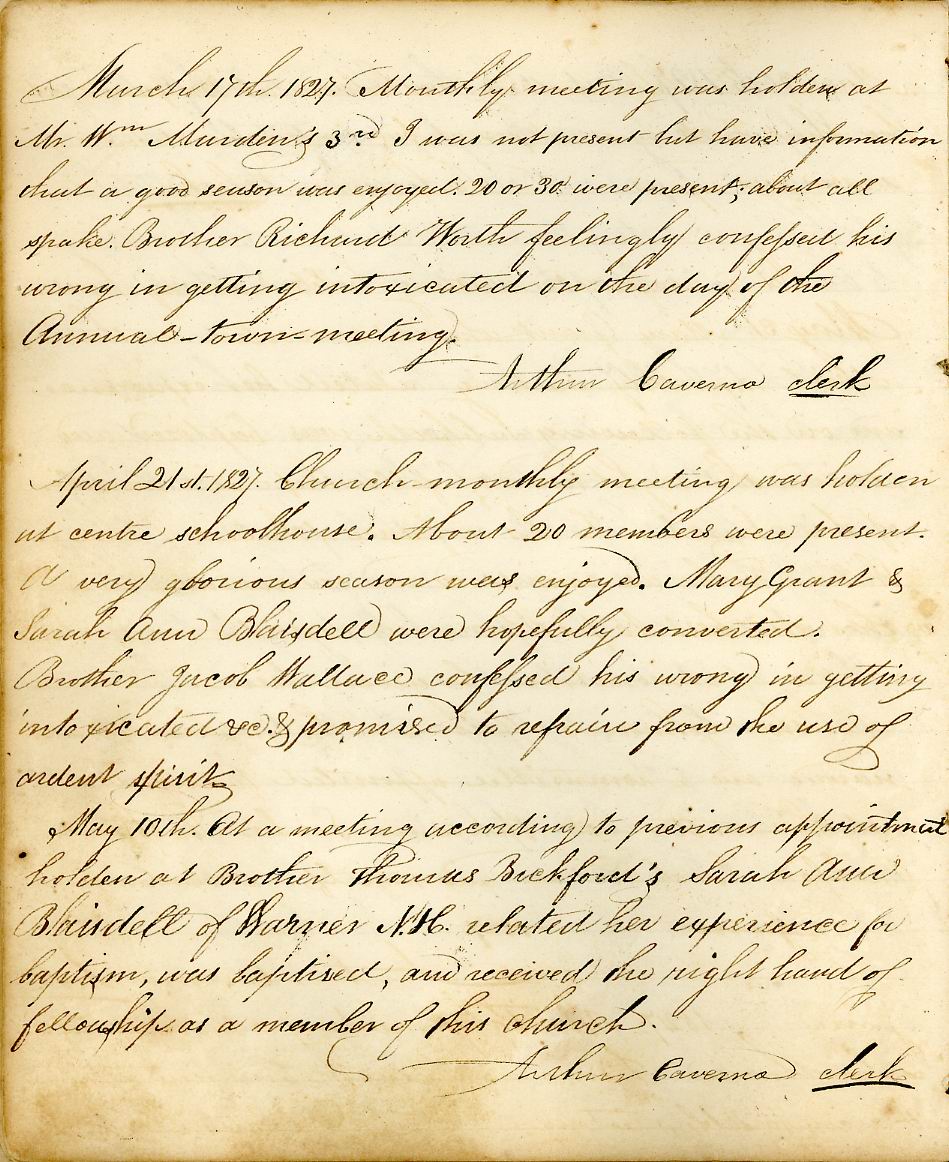 March 17th. 1827. Monthly meeting was holden at
Mr. Wm Murdin's 3rd I was not present but have information
that a good season was enjoyed. 20 or 30 were present, about all
spake. Brother Richard Worth feelingly confessed his
wrong in getting intoxicated on the day of the
Annual-town-meeting.
Arthur Caverno clerk
April 21st. 1827. Church monthly meeting was holden
at centre schoolhouse. About 20 members were present.
A very glorious season was enjoyed. Mary Grant &
Sarah Ann Blaisdell were hopefully converted.
Brother Jacob Wallace confessed his wrong in getting
intoxicated &c. & promised to refrain from the use of
ardent spirit
May 10th. At a meeting according to previous appointment
holden at Brother Thomas Bickford's Sarah Ann
Blaisdell of Warner N.H. related her experience for
baptism, was baptised, and received the right hand of
fellowship as a member of this church.
Arthur Caverno clerk